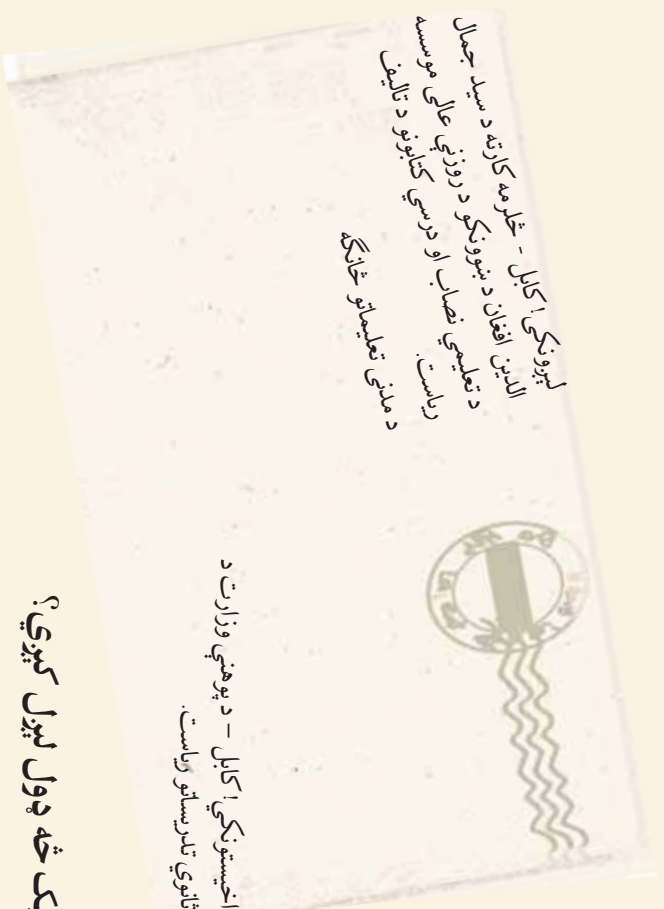 لېږونکی! کابل - څلرمه کارته د سيد جمال
الدين افغان د ښوونکو د روزنې عالي موسسه
د تعليمي نصاب او درسي کتابونو د تاليف
رياست.
د مدني تعليماتو څانګه
اخيستونکي! کابل – د پوهنې وزارت د
ثانوي تدريساتو رياست.
څه ډول لېږل کېږي؟